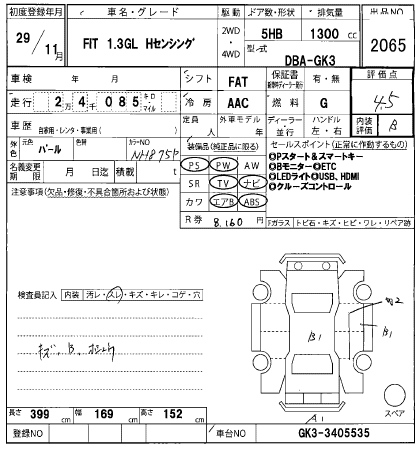 初度登録年月 車名・グレード 駆動 ドア数・形状 排気量 出品NO
29/11月 FIT 1.3GL Hセンシング 2WD・4WD 5HB 1300 cc 2065
型式 DBA-GK3
車検 年 月 シフト FAT 保証書 有・無 評価点
走行 2万4千085 キロ・マイル 冷房 AAC 燃料 G 4.5
車歴 自家用・レンタ・事業用( ) 定員 人 外車モデル 年 ディーラー・並行 ハンドル 左・右 内装評価 B
外色 元色 パール 色替 カラーNO NH875P 装備品(純正品に限る) セールスポイント(正常に作動するもの)
名義変更期限 月 日迄 積載 t PS PW AW ◎Pスタート&スマートキー
注意事項(欠品・修復・不具合箇所および状態) SR TV ナビ ◎Bモニター◎ETC
カワ エアB ABS ◎LEDライト◎USB、HDMI
R券 8,160円 ◎クルーズコントロール
『ガラス トビ石・キズ・ヒビ・ワレ・リペア跡
検査員記入 内装 汚レ・スレ・キズ・キレ・コゲ・穴
キズ、B、
B1
B1
A1
スペア
長さ 399 cm 幅 169 cm 高さ 152 cm
登録NO 車台NO GK3-3405535